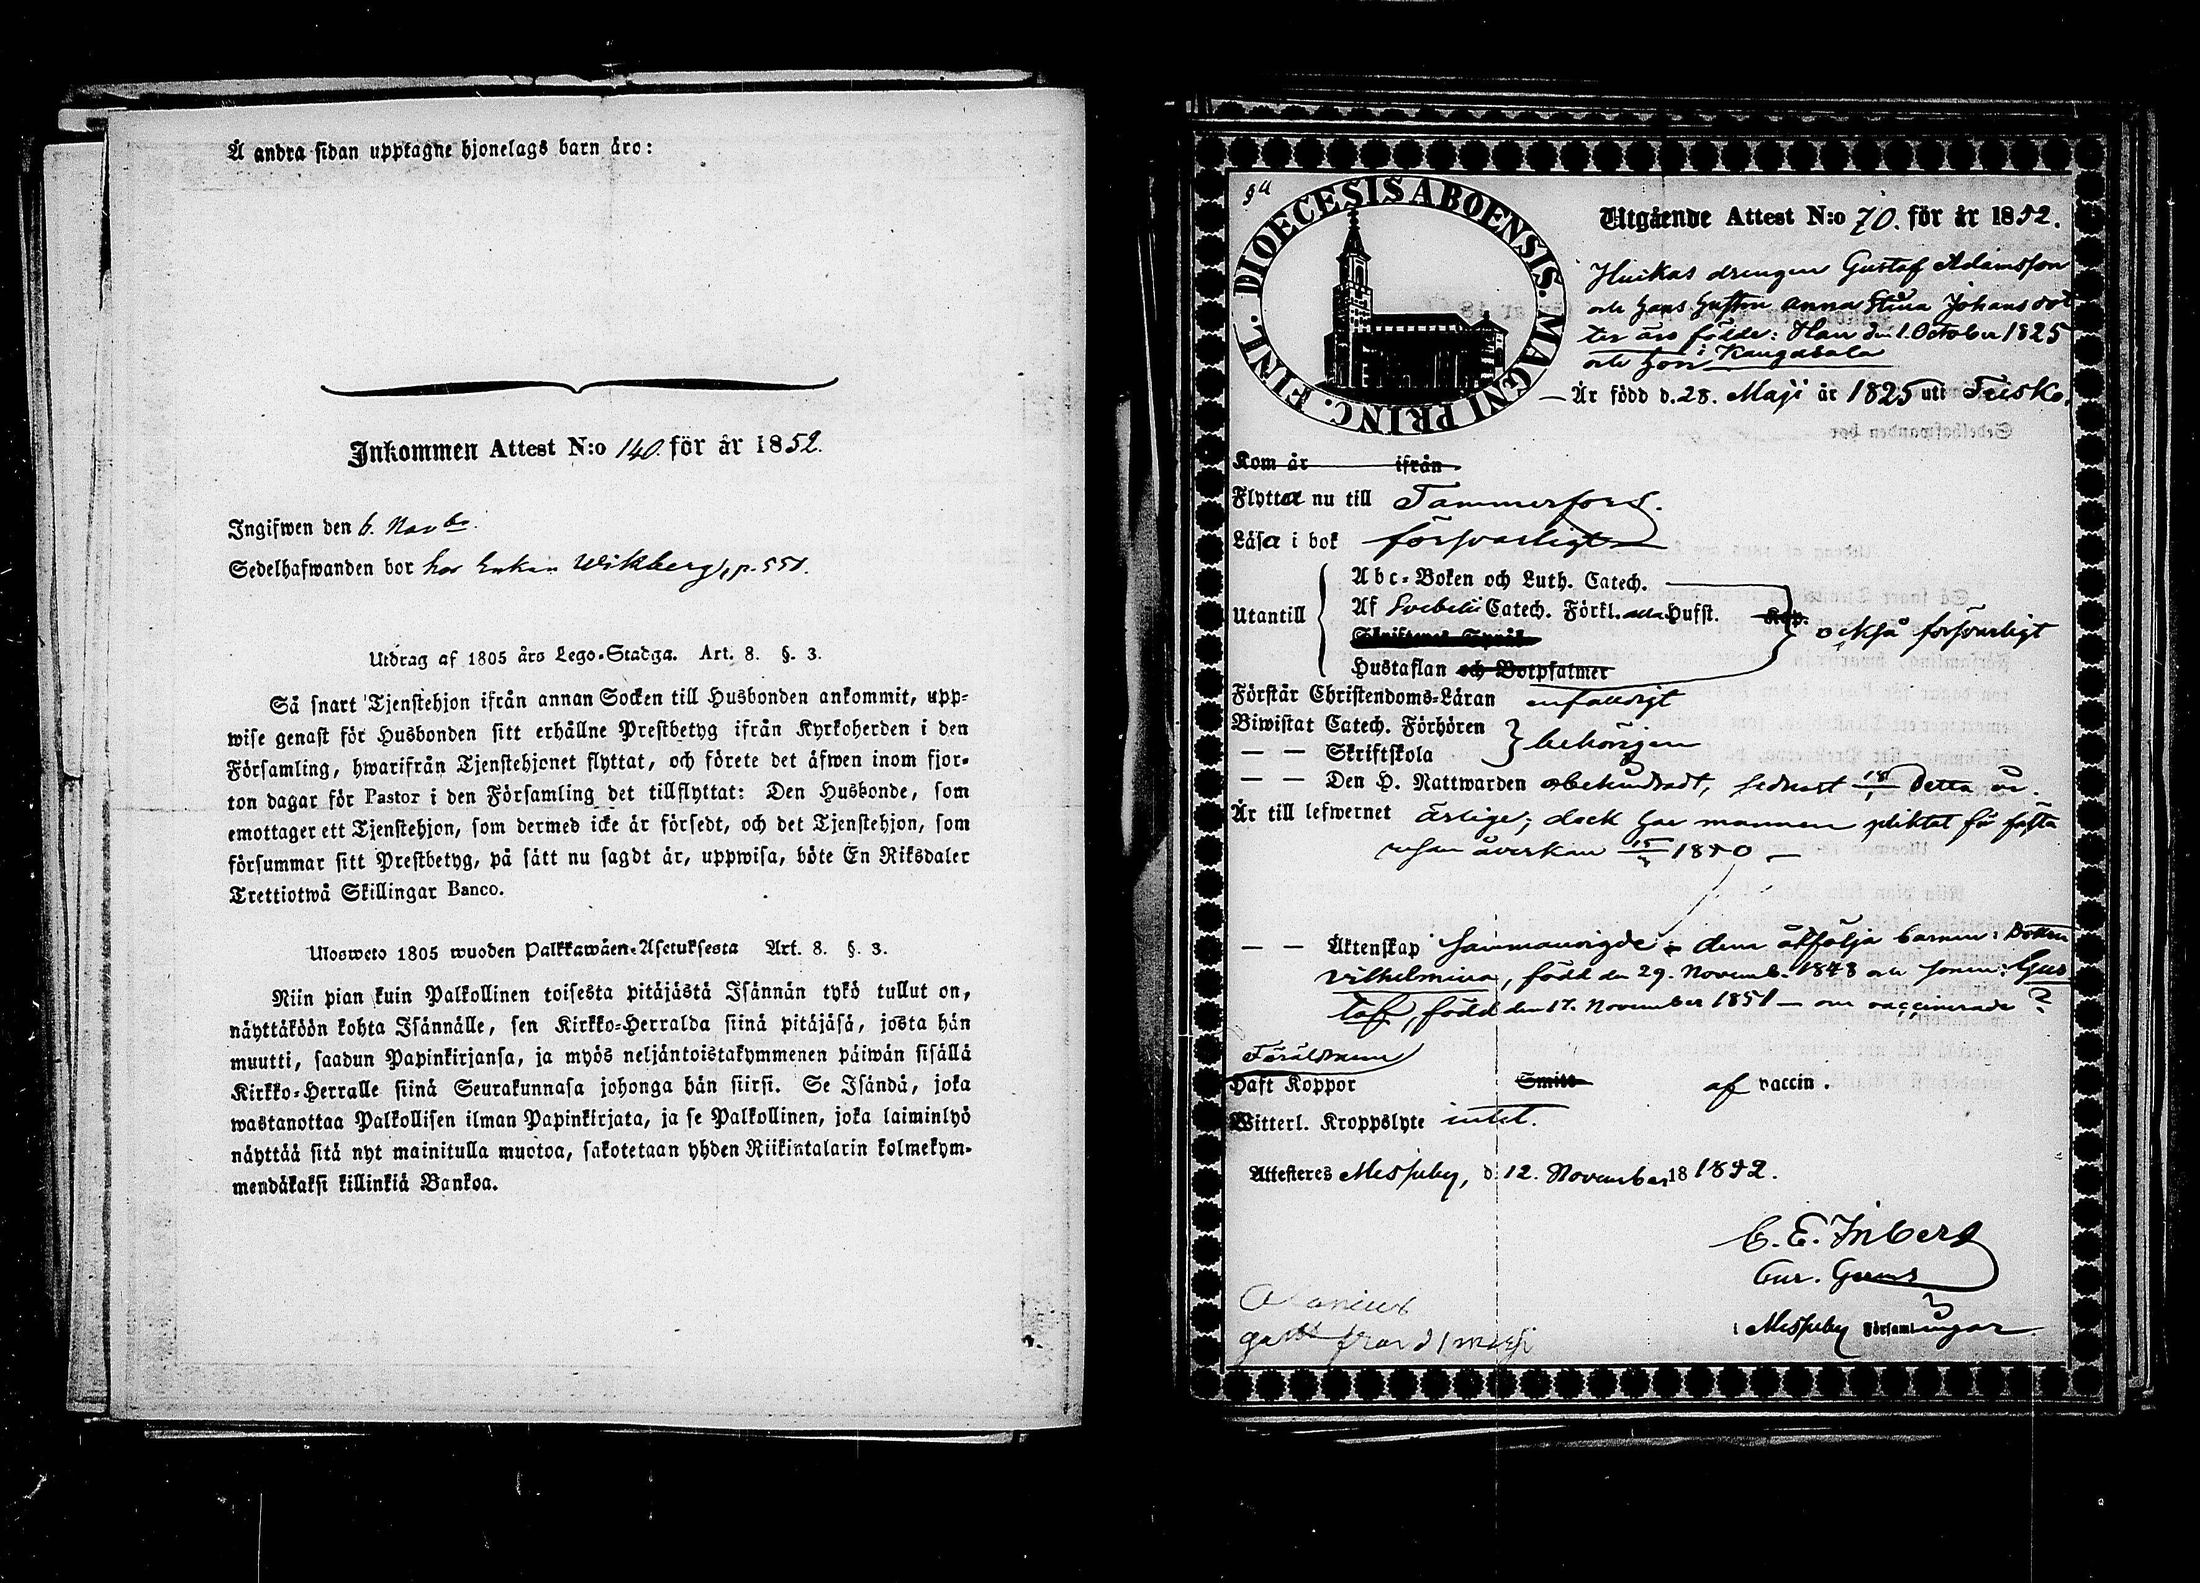 Å andra sidan upptagne hjonelags barn äro:
Inkommen Attest N:o 140. för år 1852.
Ingifwen den 6. Novbr.
Sedelhafwanden bor hos Enkan Wikberg, p. 551.
Utdrag af 1805 års Lego-Stadga. Art. 8. §. 3.
Så snart Tjenstehjon ifrån annan Socken till Husbonden ankommit, upp-
wise genast för Husbonden sitt erhållne Prestbetyg ifrån Kyrkoherden i den
Församling, hwarifrån Tjenstehjonet flyttat, och förete det äfwen inom fjor-
ton dagar för Pastor i den Församling det tillflyttat: Den Husbonde, som
emottager ett Tjenstehjon, som dermed icke är försedt, och det Tjenstehjon, som
försummar sitt Prestbetyg, på sätt nu sagdt är, uppwisa, böte En Riksdaler
Trettiotwå Skillingar Banco.
Ulosweto 1805 wuoden Palkkawäen-Asetuksesta Art. 8. §. 3.
Niin pian kuin Palkollinen toisesta pitäjästä Isännän tykö tullut on,
näyttäköön kohta Isännälle, sen Kirkko-Herralda siinä pitäjäsä, josta hän
muutti, saadun Papinkirjansa, ja myös neljäntoistakymmenen päiwän sisällä
Kirkko-Herralle siinä Seurakunnasa johonga hän siirsi. Se Isändä, joka
wastanottaa Palkollisen ilman Papinkirjata, ja se Palkollinen, joka laiminlyö
näyttää sitä nyt mainitulla muotoa, sakotetaan yhden Riikintalarin kolmekym-
mendäkaksi killinkiä Bankoa.
DIOECESIS ABOENSIS. MAGNI PRINC. FINL.
Utgående Attest N:o 70. för år 1852.
Huikas drengen Gustaf Adamsson
och hans hustru Anna Stina Johansdot
ter äro födde: Han den 1. October 1825
i Kangasala
och hon
Är född d. 28. Maji år 1825 uti Teisko.
Kom år ifrån
Flytta nu till Tammerfors.
Läsa i bok försvarligt
Abc-Boken och Luth. Catech.
Utantill Af Svebelii Catech. Förkl. Hufst. Kap. också försvarligt
Skriftenes Språk
Hustaflan och Botpsalmer
Förstår Christendoms-Läran enfaldigt
Biwistat Catech. Förhören behörigen
— — Skriftskola
— — Den H. Nattwarden obehindradt, sednast detta år.
Är till lefwernet ärlige, dock har mannen pliktat för första
resan åverkan 1850 —
— — Äktenskap sammanvigde; dem åtfölja barnen: Dottren
Vilhelmina, född den 29. Novemb. 1848 och sonen: Gus
taf, född den 17. November 1851 — om vaccinerade?
Föräldrarne
Haft Koppor Smitt af vaccin.
Witterl. Kroppslyte intet.
Attesteres Messuby, d. 12. November 18 1852.
C. E.
i Messuby Församlingar